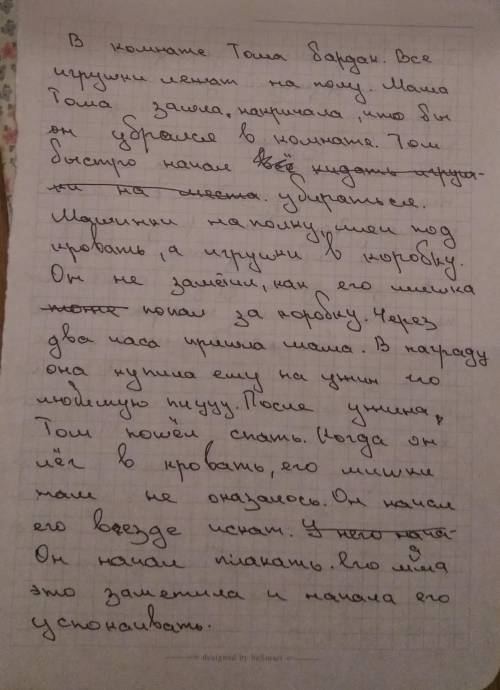 В комнате Тома бардак. Все
игрушки лежат на полу. Мама
Тома зашла, накричала, что бы
он убрался в комнате. Том
быстро начал всё кидать игруш-
ки на места. убираться.
Машинки на полку, мячи под
кровать, а игрушки в коробку.
Он не заметил, как его мишка
тоже попал за коробку. Через
два часа пришла мама. В награду
она купила ему на ужин его
любимую пиццу. После ужина,
Том пошёл спать. Когда он
лёг в кровать, его мишки
там не оказалось. Он начал
его везде искать. У него нача-
Он начал плакать. Его мама
это заметила и начала его
успокаивать.
designed by beSmart